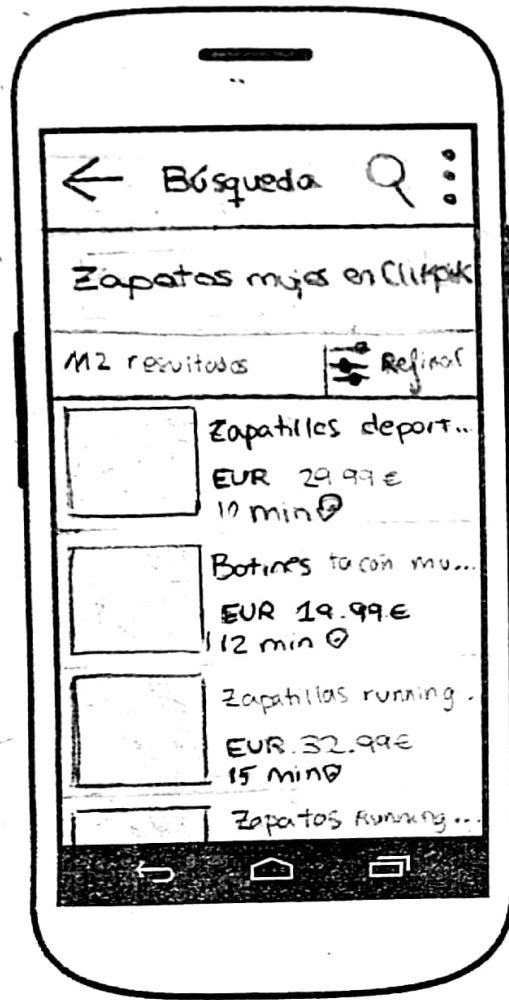 Búsqueda
Zapatos mujer en Clikpik
112 resultados
Refinar
Zapatillas deport..
EUR 29.99€
10 min
Botines tacón mu...
EUR 19.99€
12 min
Zapatillas running .
EUR 32.99€
15 min
Zapatos Running...